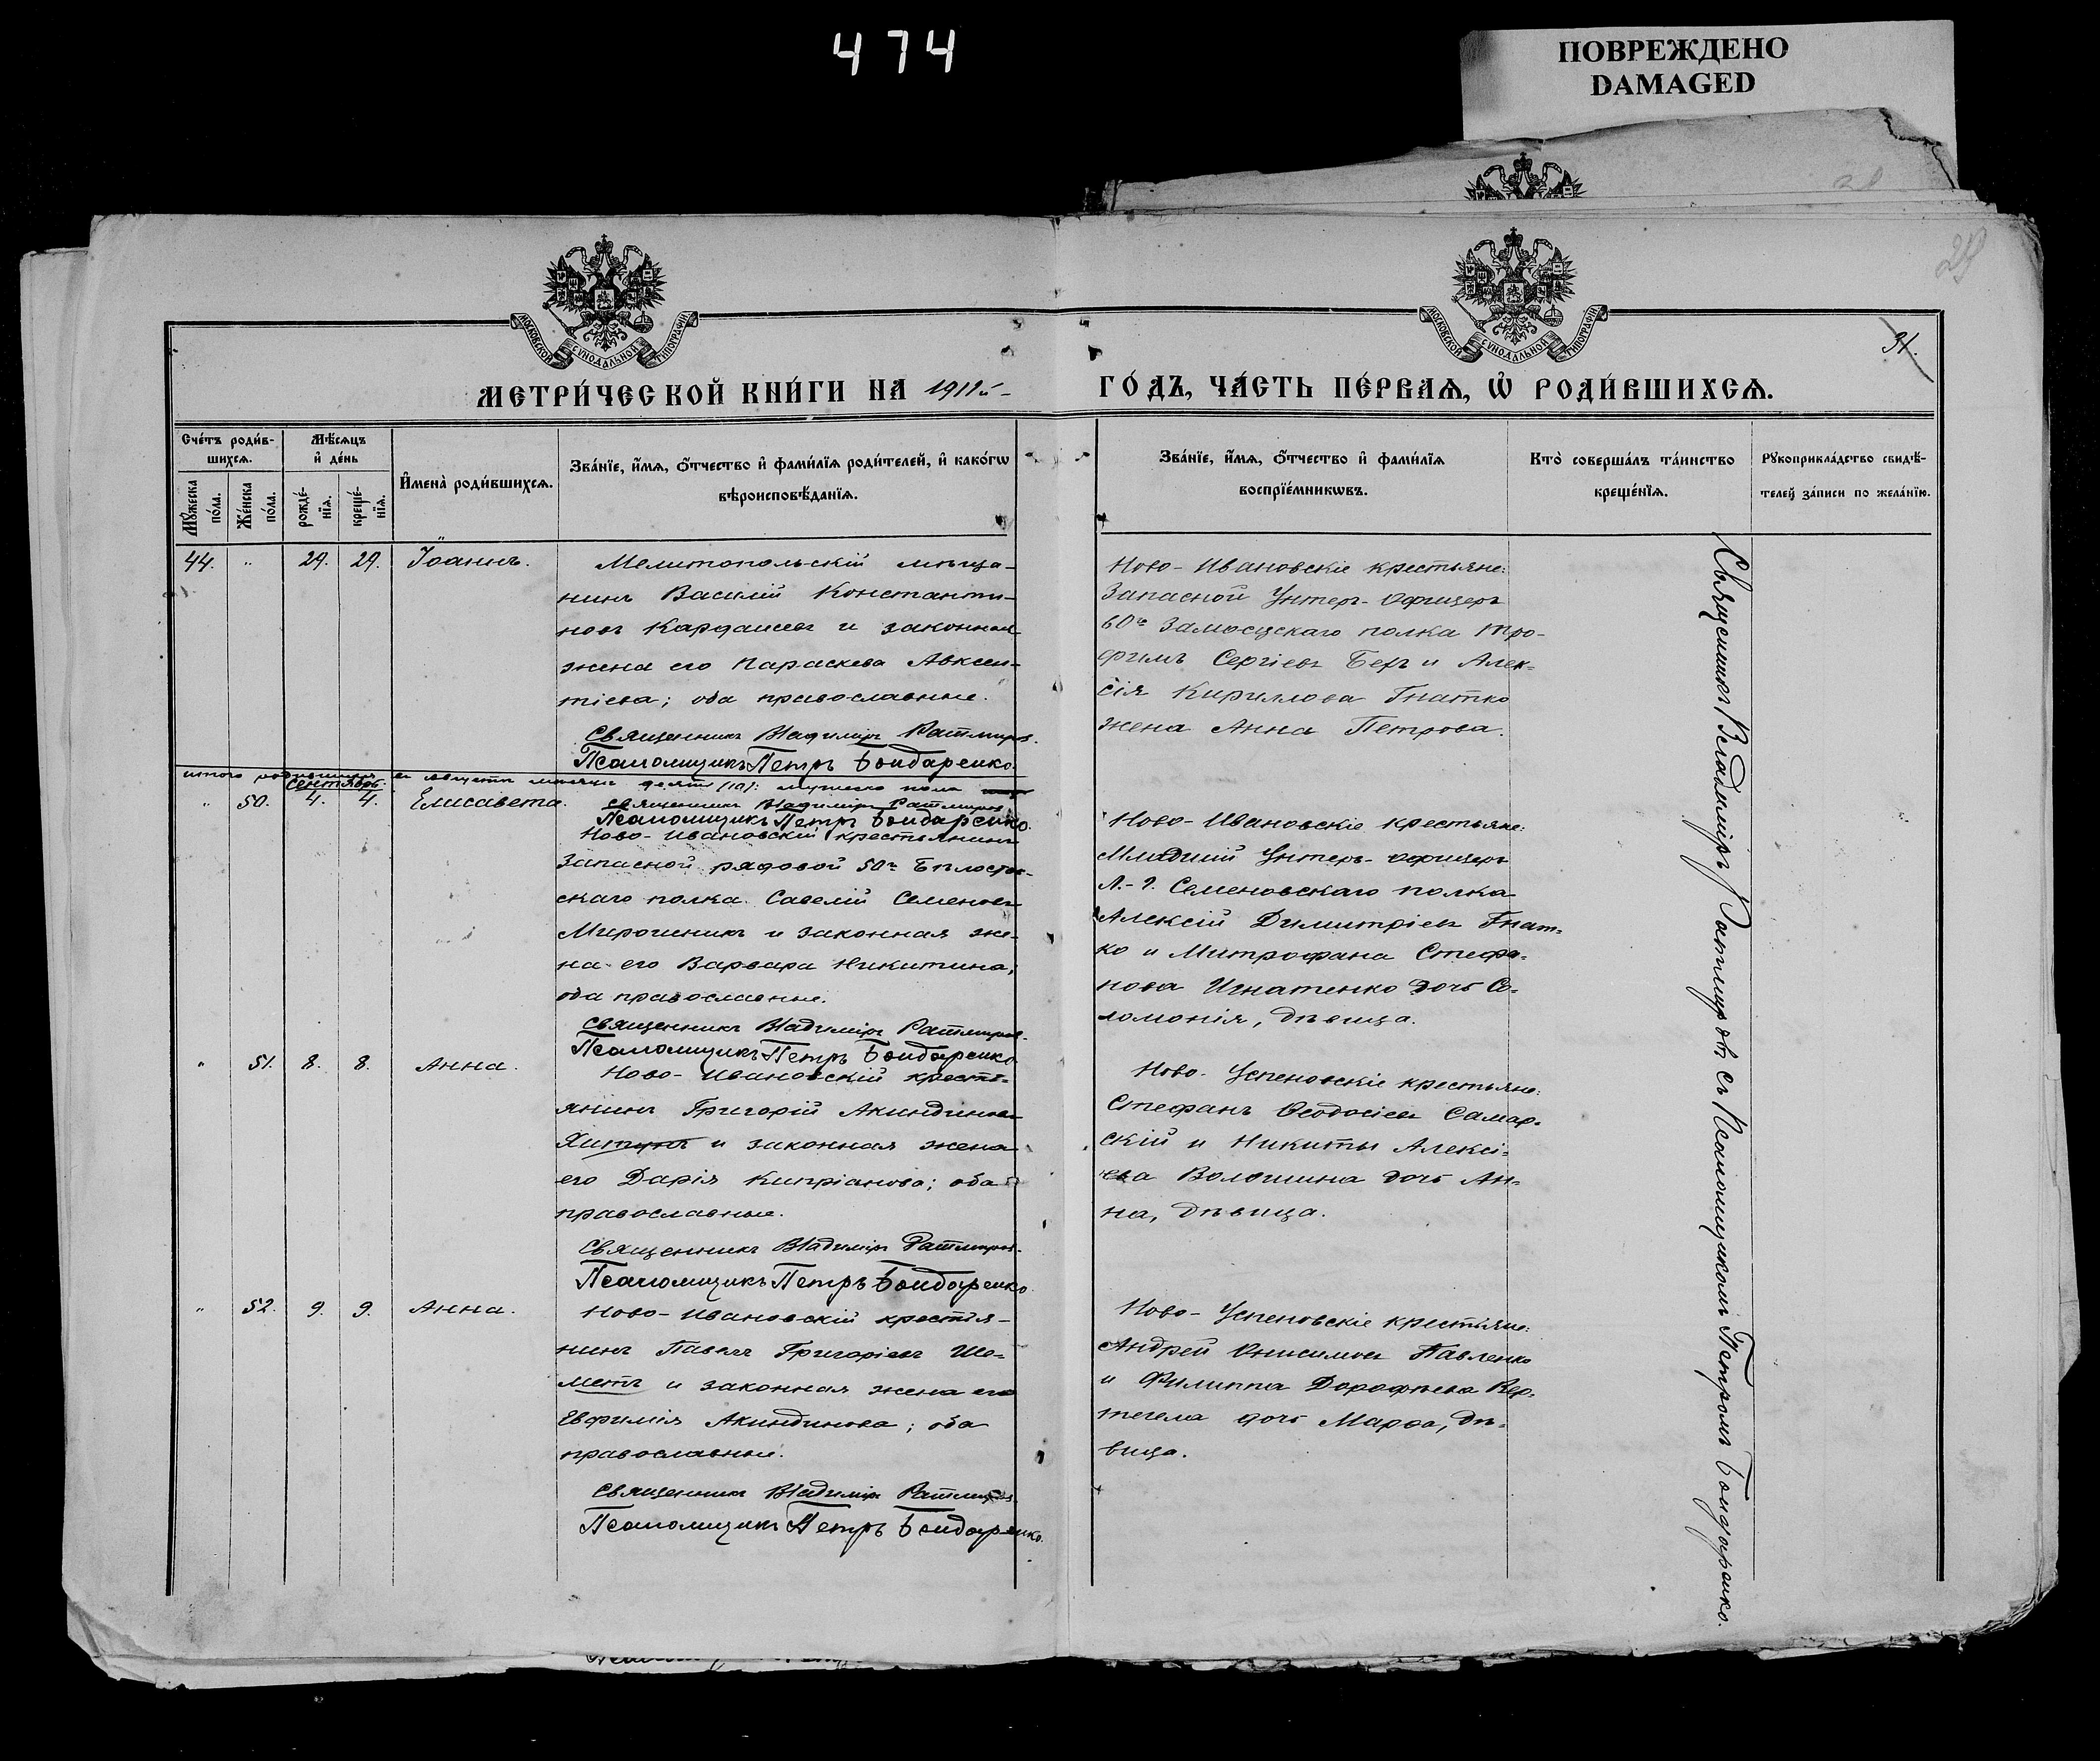 474
ПОВРЕЖДЕНО
DAMAGED
29
31.
МОСКОВСКОЙ СѴНОДАЛЬНОЙ ТИПОГРАФІИ
МОСКОВСКОЙ СѴНОДАЛЬНОЙ ТИПОГРАФІИ
МЕТРИ́ЧЕСКОЙ КНИ́ГИ НА 1911й
ГО́ДЪ, ЧА́СТЬ ПЕ́РВАѦ, Ѡ҆ РОДИ́ВШИХСѦ.
Сче́тъ роди́в-
шихсѧ.
Мꙋ́жеска по́ла.
Же́нска по́ла.
Мѣ́сѧцъ
и҆ де́нь
рожде́-нїѧ.
креще́-нїѧ.
И҆мена̀ роди́вшихсѧ.
Зва́нїе, и҆́мѧ, о҆́тчество и҆ фами́лїѧ роди́телей, и҆ како́гѡ
вѣроисповѣ́данїѧ.
Зва́нїе, и҆́мѧ, о҆́тчество и҆ фами́лїѧ
воспрїе́мникѡвъ.
Кто̀ соверша́лъ та́инство
креще́нїѧ.
Рꙋкоприкла́дство свидѣ́-
телей за́писи по жела́нїю.
44. " 29. 29. Іоаннъ.
Мелитопольскій мѣща-
нинъ Василій Константи-
новъ Кардашевъ и законная
жена его Параскева Авксен-
тіева; оба православные.
Священникъ Владиміръ Ратмировъ.
Псаломщикъ Петръ Бондаренко
Ново-Ивановскіе крестьяне:
Запасной Унтеръ-Офицеръ
60го Замосцскаго полка Тро-
фимъ Сергіевъ Бехъ и Алек-
сія Кириллова Гнатко
жена Анна Петрова.
итого родившихся въ августѣ мѣсяцѣ десять (10): мужеска пола
Священникъ Владиміръ Ратмировъ
Псаломщикъ Петръ Бондаренко.
Сентябрь.
" 50. 4. 4. Елисавета.
Ново-Ивановскій крестьянинъ
Запасной рядовой 50го Бѣлосток-
скаго полка Савелій Семеновъ
Мирошникъ и законная же-
на его Варвара Никитина;
оба православные.
Священникъ Владиміръ Ратмировъ.
Псаломщикъ Петръ Бондаренко
Ново-Ивановскіе крестьяне:
Младшій Унтеръ-Офицеръ
Л.-Г. Семеновскаго полка
Алексій Димитріевъ Гнат-
ко и Митрофана Стефа-
нова Игнатенко дочь Со-
ломонія, дѣвица.
" 51. 8. 8. Анна.
Ново-Ивановскій кресть-
янинъ Григорій Акиндиновъ
и законная жена
его Дарія Кипріанова; оба
православные.
Священникъ Владиміръ Ратмировъ.
Псаломщикъ Петръ Бондаренко
Ново-Успеновскіе крестьяне:
Стефанъ Ѳеодосіевъ Самар-
скій и Никиты Алексі-
ева Волошина дочь Ан-
на, дѣвица.
" 52. 9. 9. Анна.
Ново-Ивановскій крестья-
нинъ Павелъ Григоріевъ Ше-
метъ и законная жена его
Евфимія Акиндинова; оба
православные.
Священникъ Владиміръ Ратмировъ
Псаломщикъ Петръ Бондаренко.
Ново-Успеновскіе крестьяне:
Андрей Онисимовъ Павленко
и Филиппа Дорофѣева Вер-
тегела дочь Марѳа, дѣ-
вица.
Священникъ Владиміръ Ратмировъ съ Псаломщикомъ Петромъ Бондаренко.